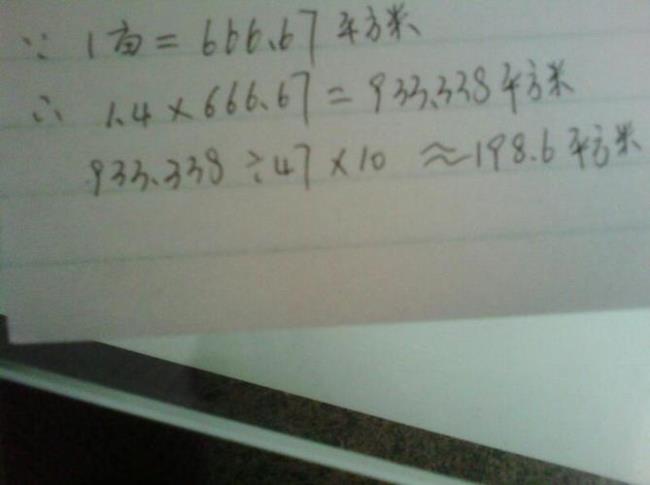 ∵ 1亩=666.67平方米
∴ 1.4×666.67=933.338平方米
933.338÷47×10≈198.6平方米